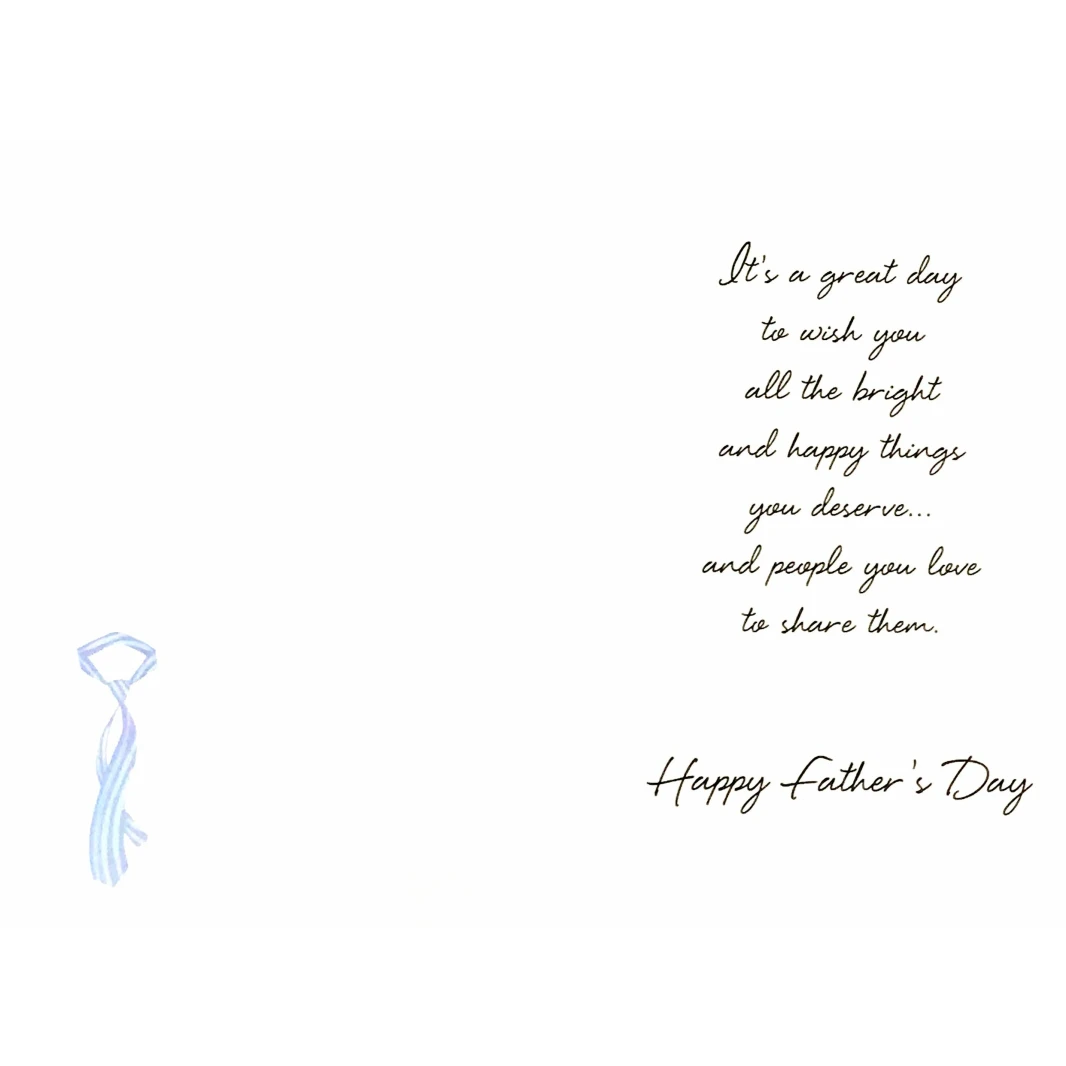 It's a great day
to wish you
all the bright
and happy things
you deserve...
and people you love
to share them.
Happy Father's Day